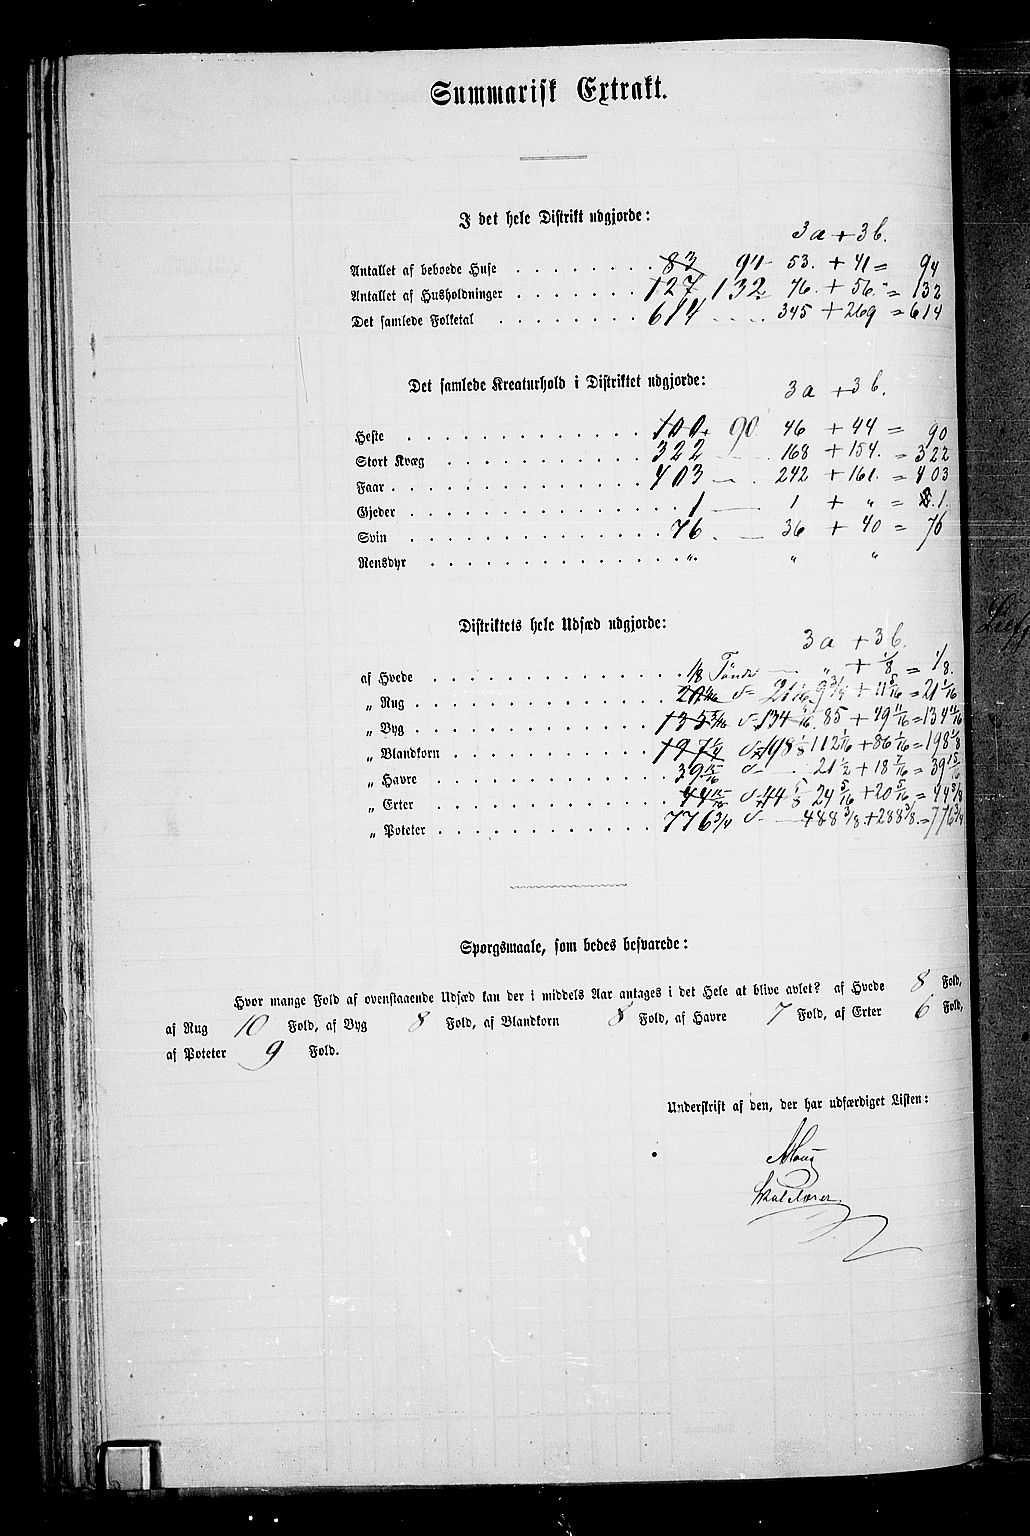 Summarisk Extrakt.
I det hele Distrikt udgjorde:
3a + 3b.
Antallet af beboede Huse 83 94 53. + 41 = 94
Antallet af Husholdninger 127 132 76. + 56 = 132
Det samlede Folketal 614 345 + 269 = 614
Det samlede Kreaturhold i Distriktet udgjorde:
3a + 3b.
Heste 100 90 46 + 44 = 90
Stort Kvæg 322 168 + 154. = 322
Faar 403 242 + 161. = 403
Gjeder 1 1 + " = 1
Svin 76 36 + 40 = 76
Rensdyr " " "
Distriktets hele Udsæd udgjorde:
3a + 3b.
af Hvede 1/8 Tønde " + 1/8 = 1/8.
" Rug 21 1/16 9 3/4 + 11 5/16 = 21 1/16
" Byg 134 11/16 85 + 49 11/16 = 134 11/16
" Blandkorn 197 1/4 198 1/8 112 1/16 + 86 1/16 = 198 1/8
" Havre 39 15/16 21 1/2 + 18 7/16 = 39 15/16
" Erter 44 15/16 44 5/8 24 5/16 + 20 5/16 = 44 5/8
" Poteter 776 3/4 488 3/8 + 288 3/8 = 776 3/4
Spørgsmaale, som bedes besvarede:
Hvor mange Fold af ovenstaaende Udsæd kan der i middels Aar antages i det Hele at blive avlet? af Hvede 8 Fold,
af Rug 10 Fold, af Byg 8 Fold, af Blandkorn 8 Fold, af Havre 7 Fold, af Erter 6 Fold,
af Poteter 9 Fold.
Underskrift af den, der har udfærdiget Listen:
Skolelærer